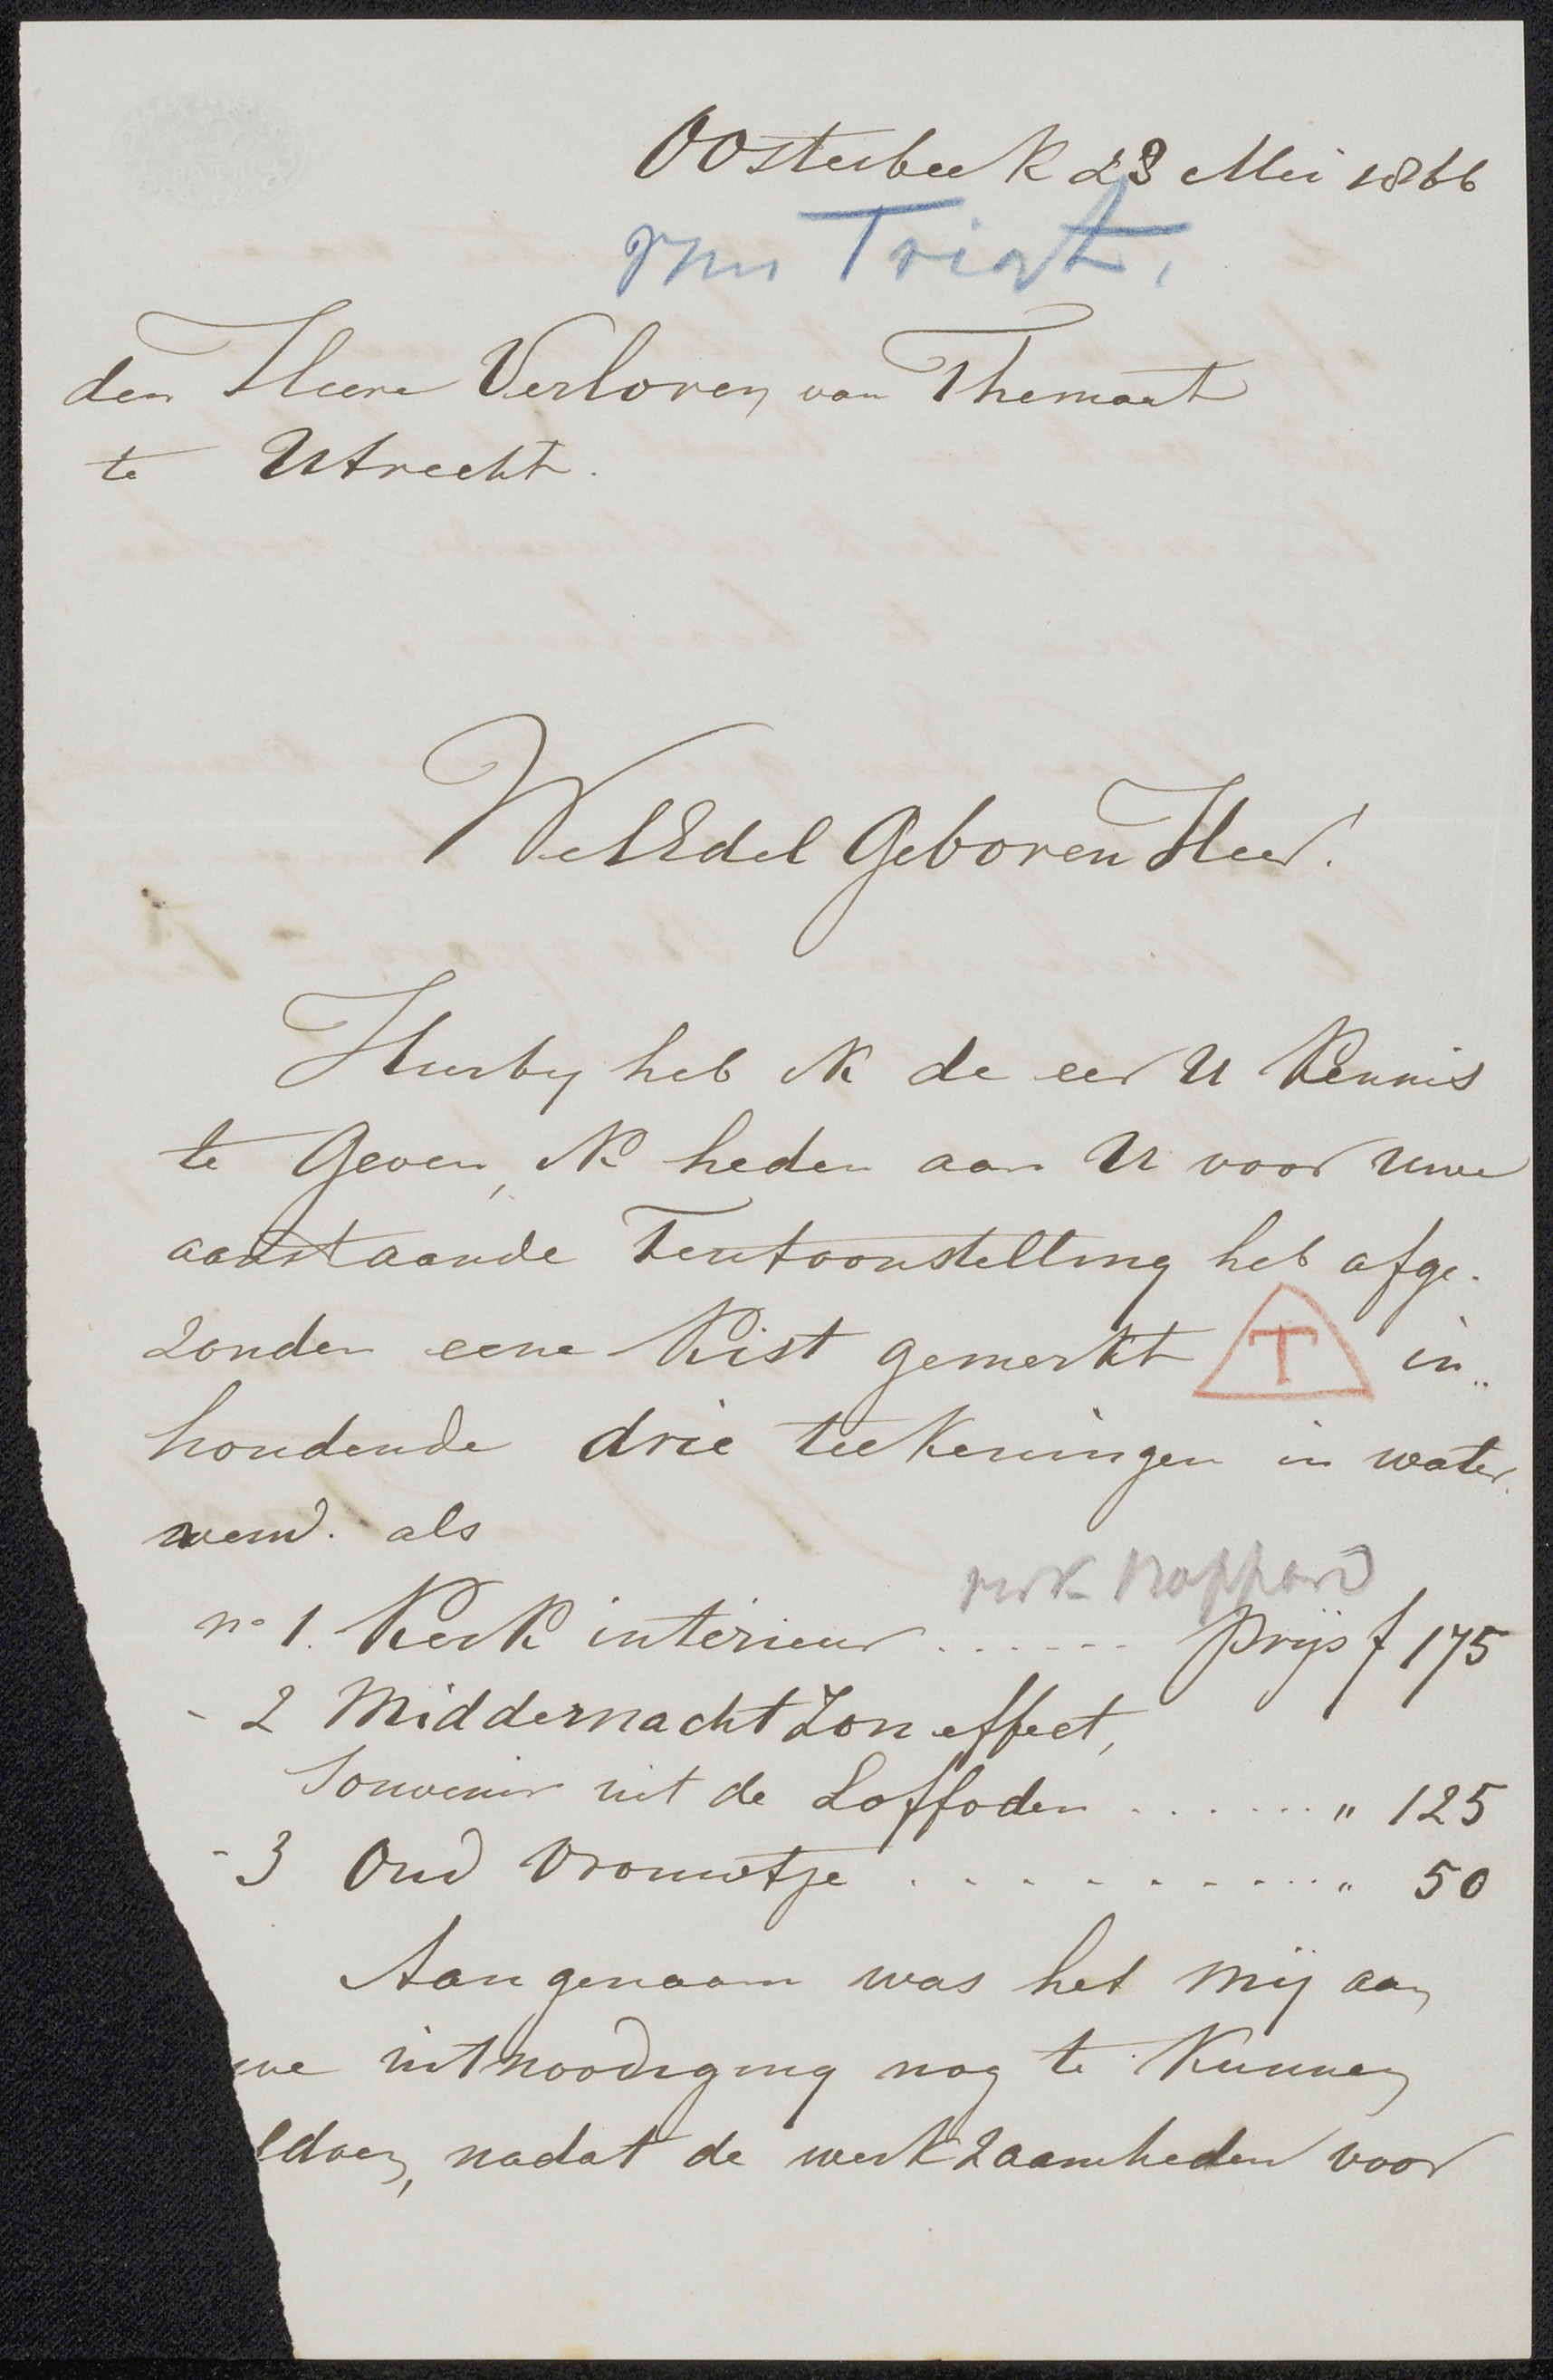 Oosterbeek 28 Mei 1866
van Trigt.
den Heere Verloren van Themaat
te Utrecht.
WelEdel Geboren Heer.
Hierby heb ik de eer U kennis
te Geven, ik heden aan U voor uwe
aanstaande Tentoonstelling heb afge-
zonden eene Kist gemerkt T in„
houdende drie teekeningen in water
verw. als
no 1. Kerk intérieur ...... prijs f 175
- 2 Middernacht Zon effect,
Souvenir uit de Loffoden ....... " 125
- 3 Oud vrouwtje .......... " 50
Aangenaam was het mij aan
we uitnoodiging nog te kunnen
ldoen, nadat de werkzaamheden voor